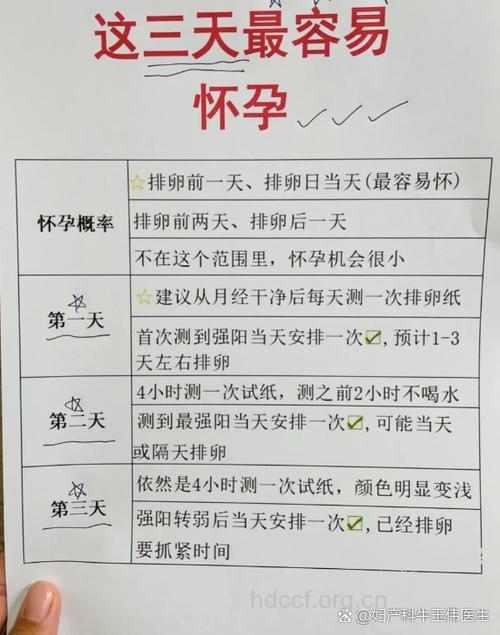 这三天最容易
怀孕
怀孕概率
☆排卵前一天、排卵日当天(最容易怀)
排卵前两天、排卵后一天
不在这个范围里，怀孕机会很小
第一天
☆建议从月经干净后每天测一次排卵纸
首次测到强阳当天安排一次✅,预计1-3
天左右排卵
第二天
4小时测一次试纸，测之前2小时不喝水
测到最强阳当天安排一次✅,可能当天
或隔天排卵
第三天
依然是4小时测一次试纸，颜色明显变浅
强阳转弱后当天安排一次✅,已经排卵
要抓紧时间
hdccf.org.cn
@妇产科牛玉伟医生